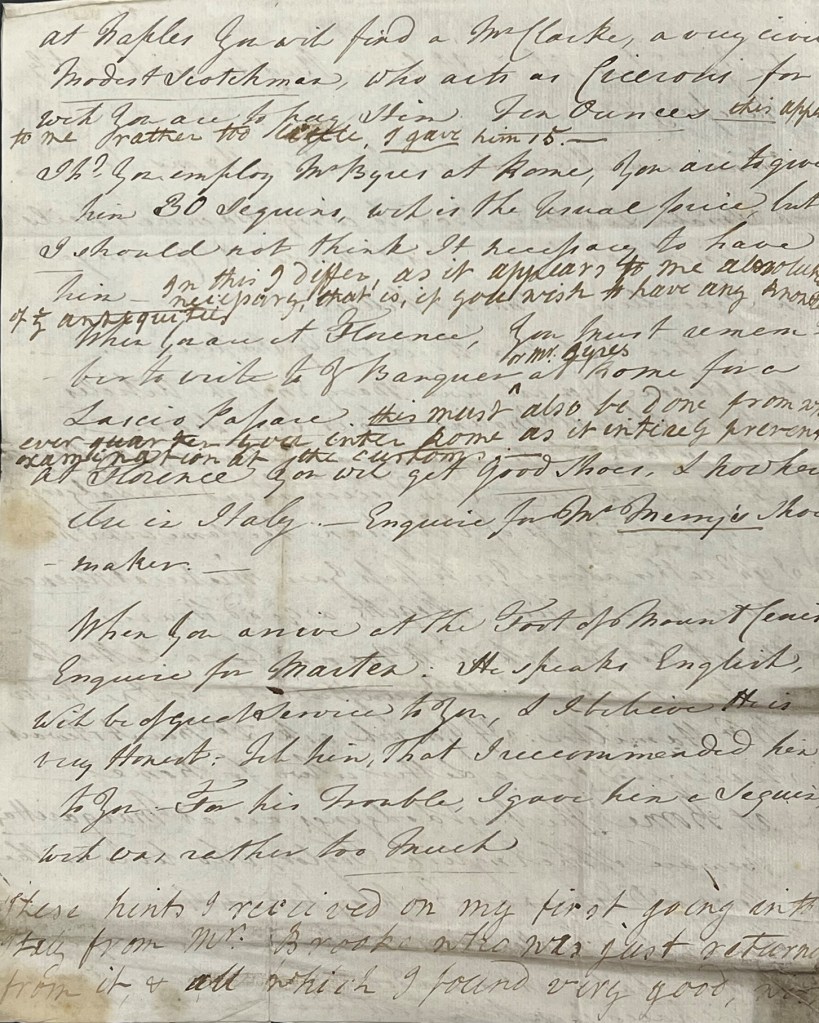 at Naples You wil find a Mr Clarke, a very civi
Modest Scotchman, who acts as Ciceroni for
wch You are to pay Him Ten Ounces this appe
to me rather too little, I gave him 15. —
Sh.d You employ Mr Byres at Rome, You are to give
him 30 Sequins, wch is the Usual price, but
I should not think It necessary to have
him — In this I differ, as it appears to me absolut
necessary, that is, if you wish to have any know
of ye antiquities
When You are at Florence, You must remem-
- ber to write to Yr Banquer ^ at Rome for a
or Mr. Byres
Lascio Passare. this must also be done from wh
ever quarter you enter Rome as it intirely preven
examination at the customs. —
At Florence You wil get Good Shoes, & nowher
else in Italy. — Enquire for Mr Merry's Shoe
- maker. —
When You arrive at the Foot of Mount Cenis
Enquire for Marten: He speaks English,
wil be of great Service to You, & I believe He is
very Honest: Tel him, That I reccommended him
to You — For his Trouble, I gave him a Sequin,
wch was rather too Much
These hints I received on my first going into
Italy from Mr. Brooke who was just returne
from it, & all which I found very good,